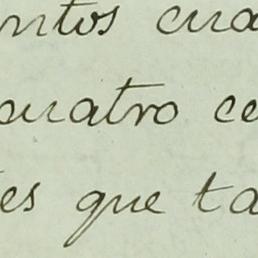 ntos cua
cuatro ce
es que ta